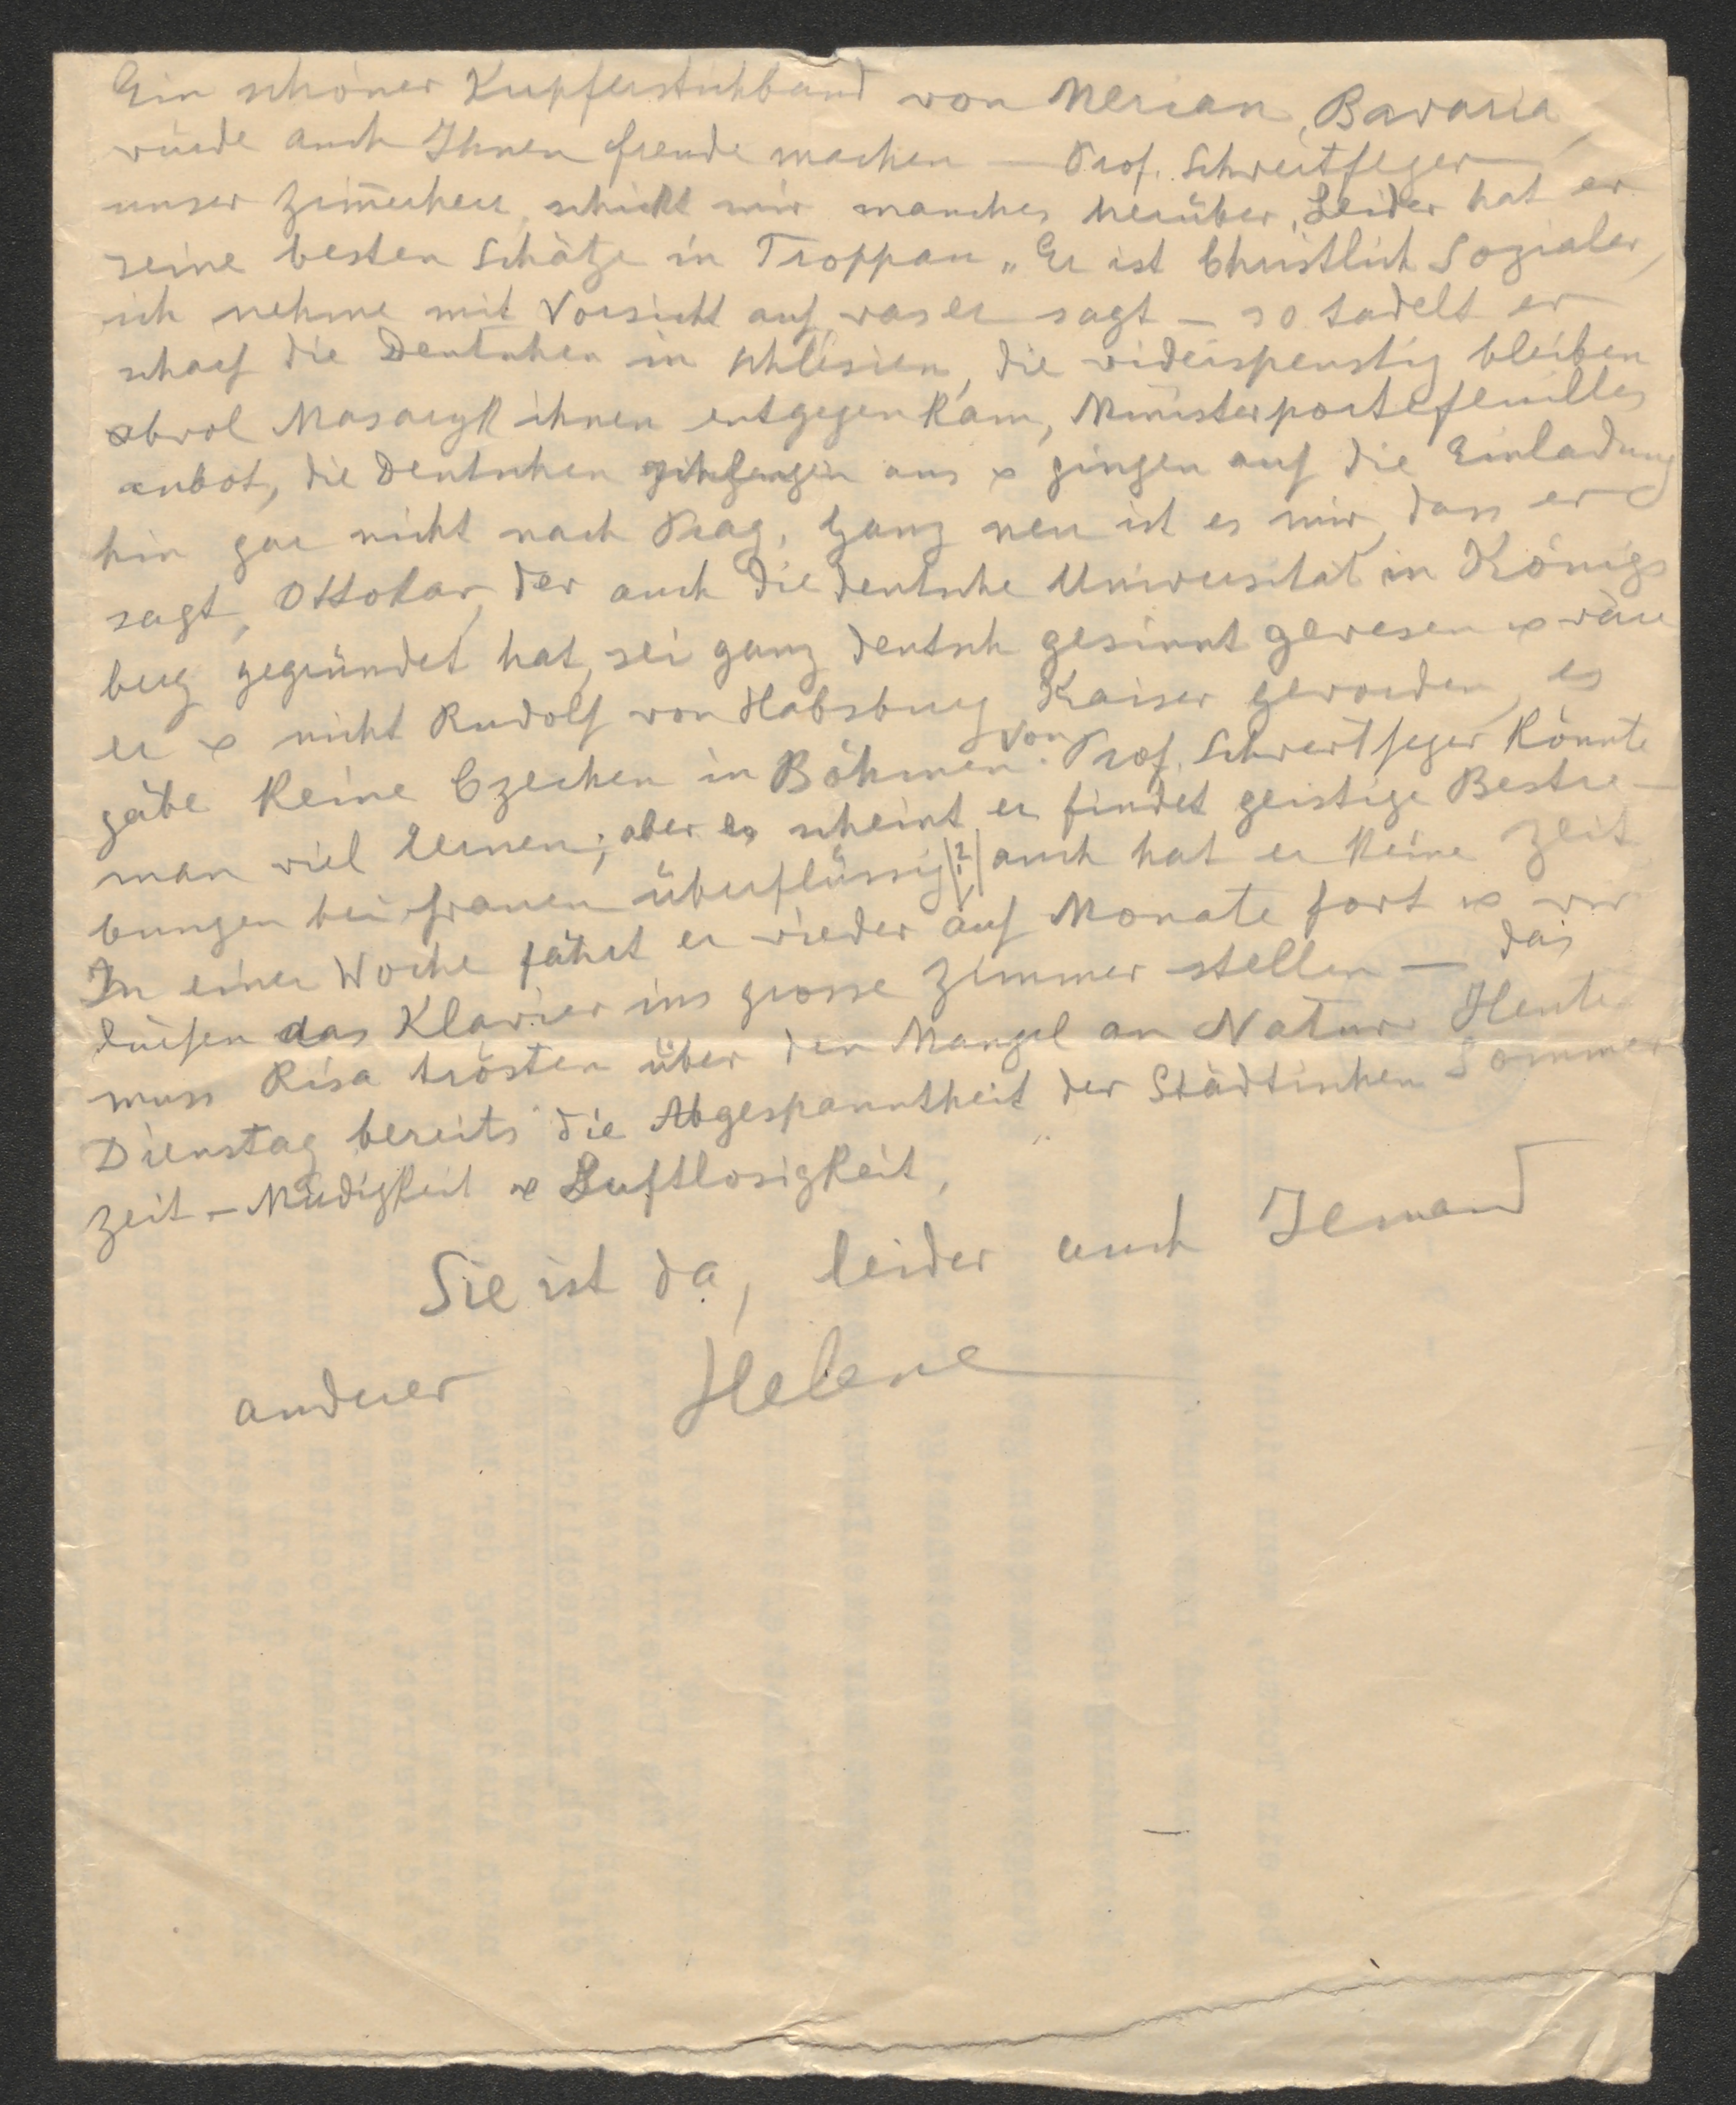 Ein schöner Kupferstichband von Merian, Bavaria,
würde auch Ihnen Freude machen — Prof. Schwertfeger
unser Zim̄erherr, schickt mir manches herüber, Leider hat er
seine besten Schätze in Troppau „ Er ist Christlich Sozialer,
ich nehme mit Vorsicht auf, was er sagt – so tadelt er
scharf die Deutschen in Schlesien, die widerspenstig bleiben
obwol Masaryk ihnen entgegen kam, Ministerportefeuilles
anbot, die Deutschen aus & gingen auf die Einladung
hin gar nicht nach Prag. Ganz neu ist es mir, dass er
sagt, Ottokar, der auch die deutsche Universität in Königs
berg gegründet hat, sei ganz deutsch gesinnt gewesen & wäre
er & nicht Rudolf von Habsburg Kaiser geworden, es
gäbe keine Czechen in Böhmen. Von Prof. Schwertfeger könnte
man viel lernen; aber es scheint er findet geistige Bestre–
bungen bei Frauen überflüssig |?| auch hat er keine Zeit
In einer Woche fährt er wieder auf Monate fort & wir
dürfen das Klavier ins grosse Zimmer stellen — das
muss Risa trösten über den Mangel an Natur. Heute
Dienstag bereits die Abgespanntheit der Städtischen Sommer
zeit – Müdigkeit & Luftlosigkeit,
Sie ist da, leider auch Jemand
anderer Helene